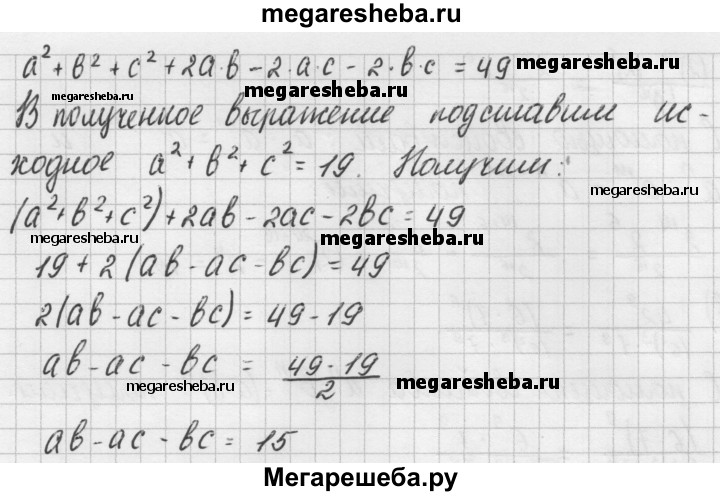 megaresheba.ru
a² + b² + c² + 2a·b - 2·a·c - 2·b·c = 49
megaresheba.ru
megaresheba.ru
megaresheba.ru
В полученное выражение подставим ис-
ходное a² + b² + c² = 19. Получим:
megaresheba.ru
(a² + b² + c²) + 2ab - 2ac - 2bc = 49
megaresheba.ru
megaresheba.ru
19 + 2(ab - ac - bc) = 49
2(ab - ac - bc) = 49 - 19
ab - ac - bc = (49 - 19)/2
megaresheba.ru
megaresheba.ru
ab - ac - bc = 15
Мегарешеба.ру